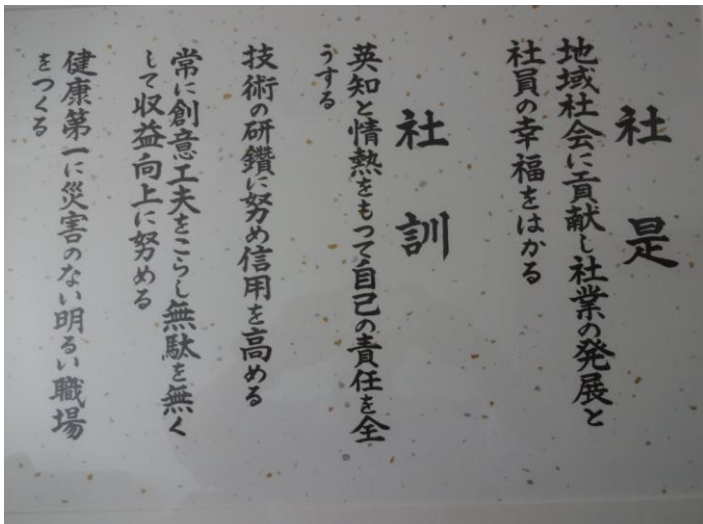 社是
地域社会に貢献し社業の発展と
社員の幸福をはかる
社訓
英知と情熱をもって自己の責任を全
うする
技術の研鑽に努め信用を高める
常に創意工夫をこらし無駄を無く
して収益向上に努める
健康第一に災害のない明るい職場
をつくる